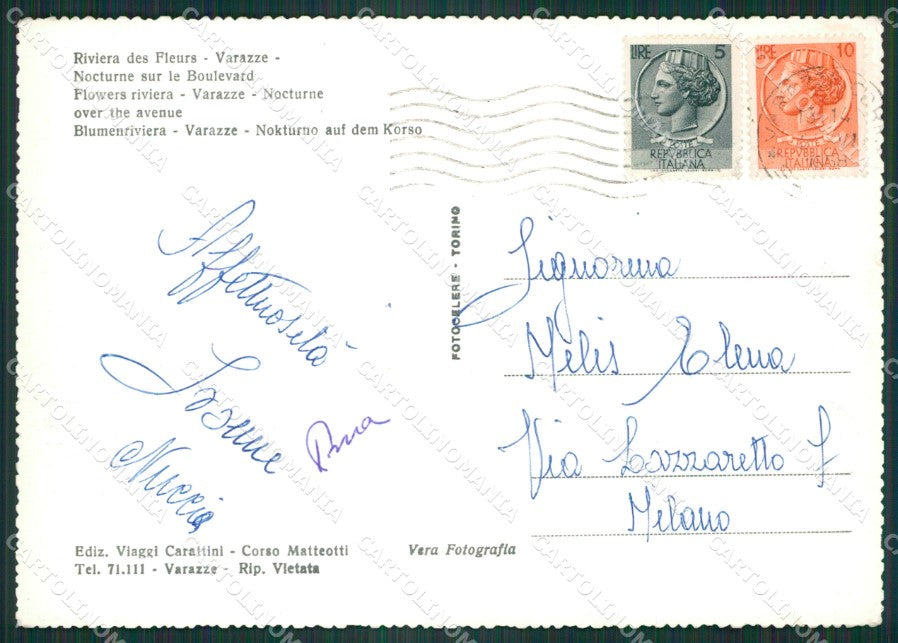 Riviera des Fleurs - Varazze -
Nocturne sur le Boulevard
Flowers riviera - Varazze - Nocturne
over the avenue
Blumenriviera - Varazze - Nokturno auf dem Korso
LIRE 5
REPVBBLICA
ITALIANA
LIRE 10
REPVBBLICA
ITALIANA
Affettuosità
Nuccia
FOTOCELERE - TORINO
Signorina
Melis Elena
Via Lazzaretto
Milano
Ediz. Viaggi Carattini - Corso Matteotti
Tel. 71.111 - Varazze - Rip. Vietata
Vera Fotografia
CARTOLINOMANIA